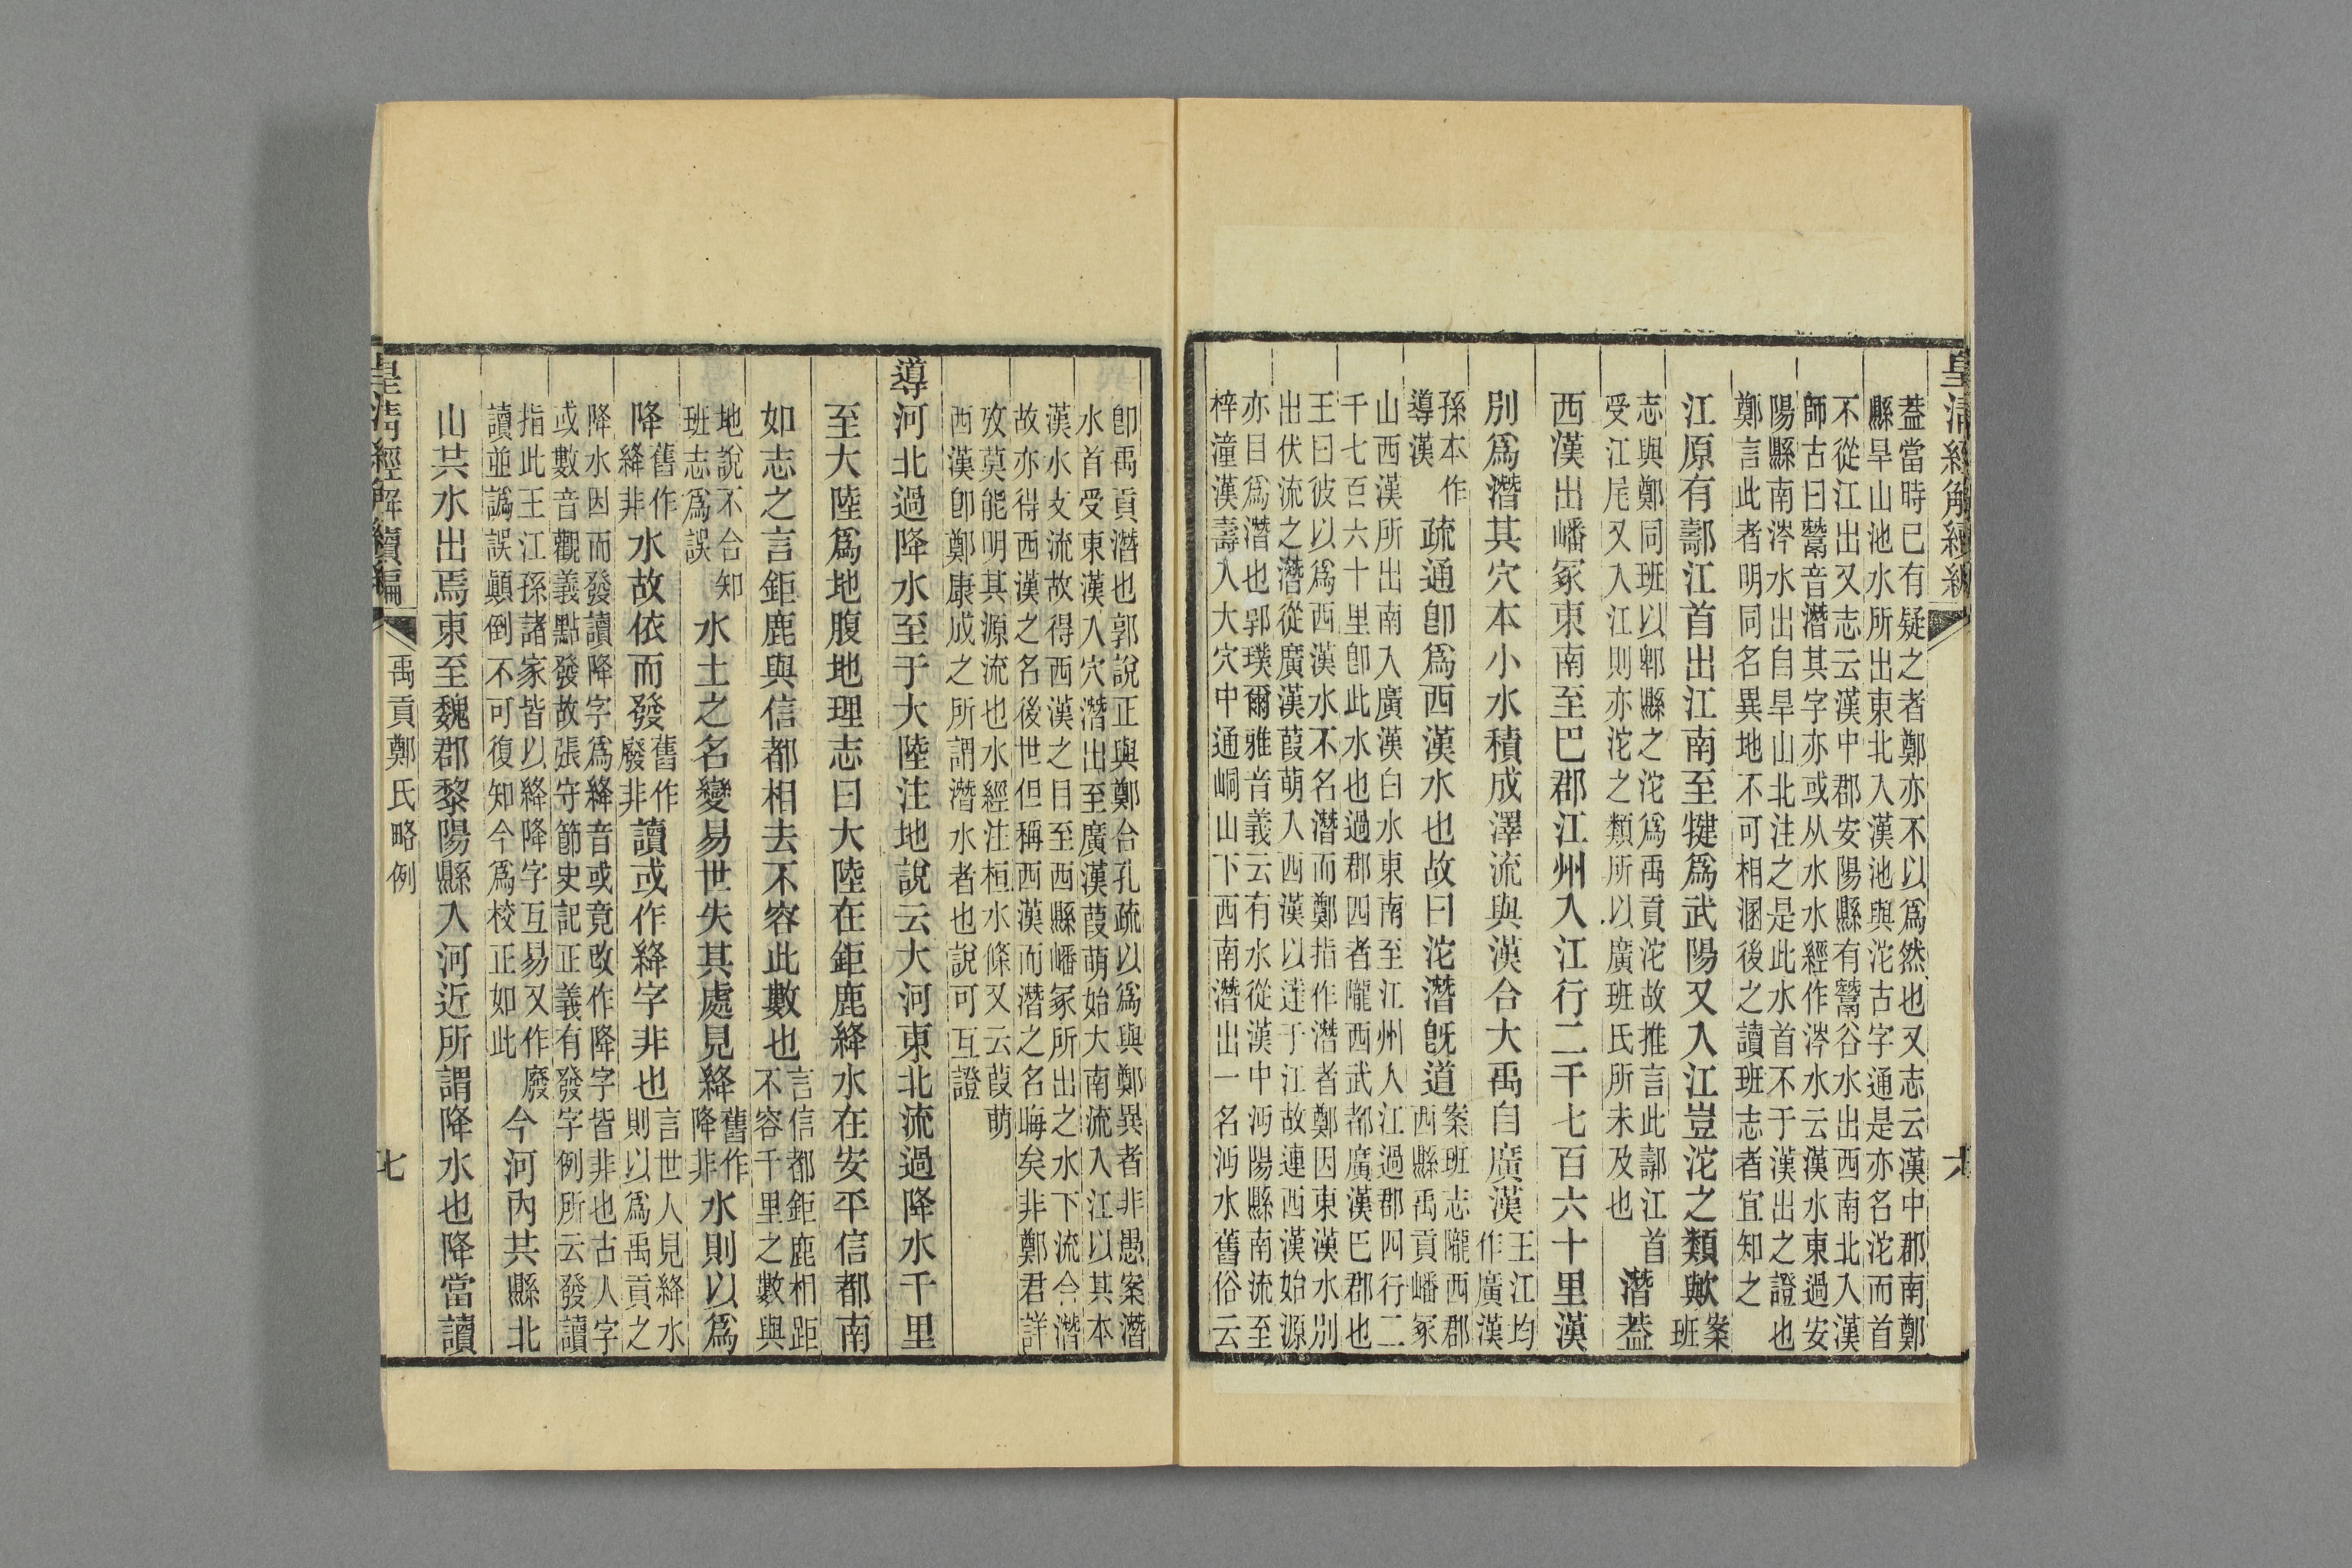 皇清經解續編
六
葢當時已有疑之者鄭亦不以爲然也又志云漢中郡南鄭
縣旱山池水所出東北入漢池與沱古字通是亦名沱而首
不從江出又志云漢中郡安陽縣有鬵谷水出西南北入漢
師古曰鬵音潛其字亦或从水水經作涔水云漢水東過安
陽縣南涔水出自旱山北注之是此水首不于漢出之證也
鄭言此者明同名異地不可相溷後之讀班志者宜知之
江原有䣝江首出江南至犍爲武陽又入江豈沱之類歟案班
志與鄭同班以郫縣之沱爲禹貢沱故推言此䣝江首
受江尾又入江則亦沱之類所以廣班氏所未及也潛葢
西漢出嶓冢東南至巴郡江州入江行二千七百六十里漢
別爲潛其穴本小水積成澤流與漢合大禹自廣漢王江均作廣漢
孫本作導漢疏通卽爲西漢水也故曰沱潛旣道案班志隴西郡西縣禹貢嶓冢
山西漢所出南入廣漢白水東南至江州入江過郡四行二
千七百六十里卽此水也過郡四者隴西武都廣漢巴郡也
王曰彼以爲西漢水不名潛而鄭指作潛者鄭因東漢水別
出伏流之潛從廣漢葭萌入西漢以達于江故連西漢始源
亦目爲潛也郭璞爾雅音義云有水從漢中沔陽縣南流至
梓潼漢壽入大穴中通峒山下西南潛出一名沔水舊俗云
卽禹貢潛也郭說正與鄭合孔疏以爲與鄭異者非愚案潛
水首受東漢入穴潛出至廣漢葭萌始大南流入江以其本
漢水支流故得西漢之目至西縣嶓冢所出之水下流合潛
故亦得西漢之名後世但稱西漢而潛之名晦矣非鄭君詳
攷莫能明其源流也水經注桓水條又云葭萌
西漢卽鄭康成之所謂潛水者也說可互證
導河北過降水至于大陸注地說云大河東北流過降水千里
至大陸爲地腹地理志曰大陸在鉅鹿絳水在安平信都南
如志之言鉅鹿與信都相去不容此數也言信都鉅鹿相距不容千里之數與
地說不合知班志爲誤水土之名變易世失其處見絳舊作降非水則以爲
降舊作絳非水故依而發舊作廢非讀或作絳字非也言世人見絳水則以爲禹貢之
降水因而發讀降字爲絳音或竟改作降字皆非也古人字
或數音觀義點發故張守節史記正義有發字例所云發讀
指此王江孫諸家皆以絳降字互易又作廢
讀並譌誤顚倒不可復知今爲校正如此今河內共縣北
山共水出焉東至魏郡黎陽縣入河近所謂降水也降當讀
皇清經解續編
禹貢鄭氏略例
七